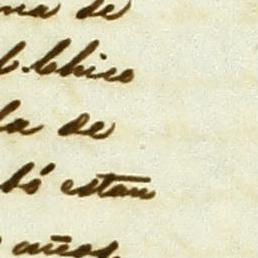 na de
l. Chico
la de
bó estan
años